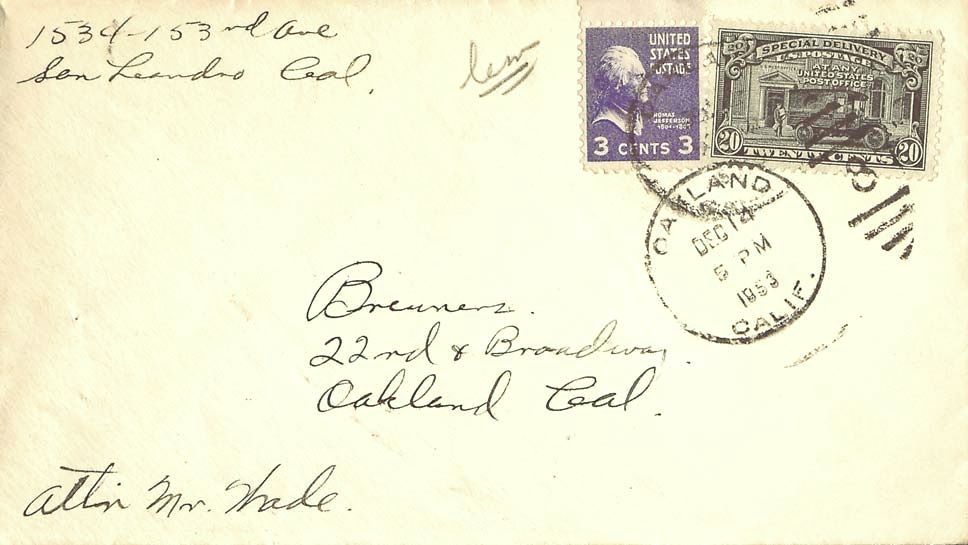 1534-153rd ave
San Leandro Cal.
UNITED
STATES
POSTAGE
THOMAS
JEFFERSON
3 CENTS 3
20 20
SPECIAL DELIVERY
U.S. POSTAGE
AT ANY
UNITED STATES
POST OFFICE
20 TWENTY CENTS 20
OAKLAND
DEC 14
5 PM
1953
CALIF.
Breuners.
22nd & Broadway
Oakland Cal.
Attn Mr. Wade.